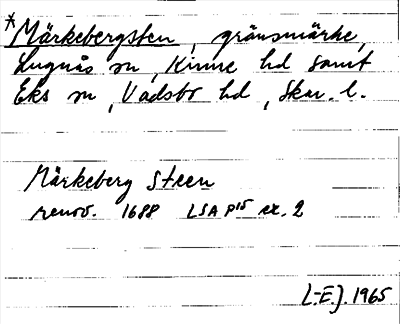 *Märkebergsten, gränsmärke,
Lugnås sn, Kinne hd samt
Eks sn, Vadsbo hd, Skar. l.
Märkeberg Steen
renov. 1688 LSA P15 ex. 2
L-E.J. 1965